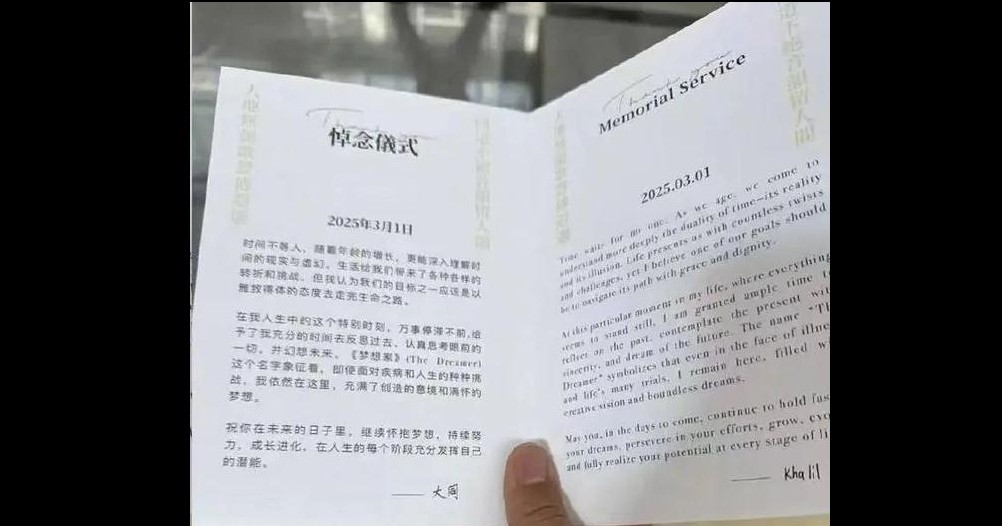 悼念儀式
2025年3月1日
时间不等人，随着年龄的增长，更能深入理解时
间的现实与虚幻。生活给我们带来了各种各样的
转折和挑战，但我认为我们的目标之一应该是以
雅致得体的态度去走完生命之路。
在我人生中的这个特别时刻，万事停滞不前，给
予了我充分的时间去反思过去、认真思考眼前的
一切，并幻想未来。《梦想家》(The Dreamer)
这个名字象征着，即使面对疾病和人生的种种挑
战，我依然在这里，充满了创造的意境和满怀的
梦想。
祝你在未来的日子里，继续怀抱梦想，持续努
力，成长进化，在人生的每个阶段充分发挥自己
的潜能。
—— 大同
Thank you
Memorial Service
2025.03.01
Time waits for no one. As we age, we come to
understand more deeply the duality of time—its reality
and its illusion. Life presents us with countless twists
and challenges, yet I believe one of our goals should
be to navigate its path with grace and dignity.
At this particular moment in my life, where everything
seems to stand still, I am granted ample time to
reflect on the past, contemplate the present with
sincerity, and dream of the future. The name "Th
Dreamer" symbolizes that even in the face of illne
and life's many trials, I remain here, filled wi
creative vision and boundless dreams.
May you, in the days to come, continue to hold fas
your dreams, persevere in your efforts, grow, evo
and fully realize your potential at every stage of li
—— Khalil